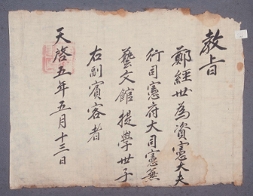 敎旨
鄭經世爲資憲大夫
行司憲府大司憲兼
藝文館提學世子
右副賓客者
天啓五年五月十三日